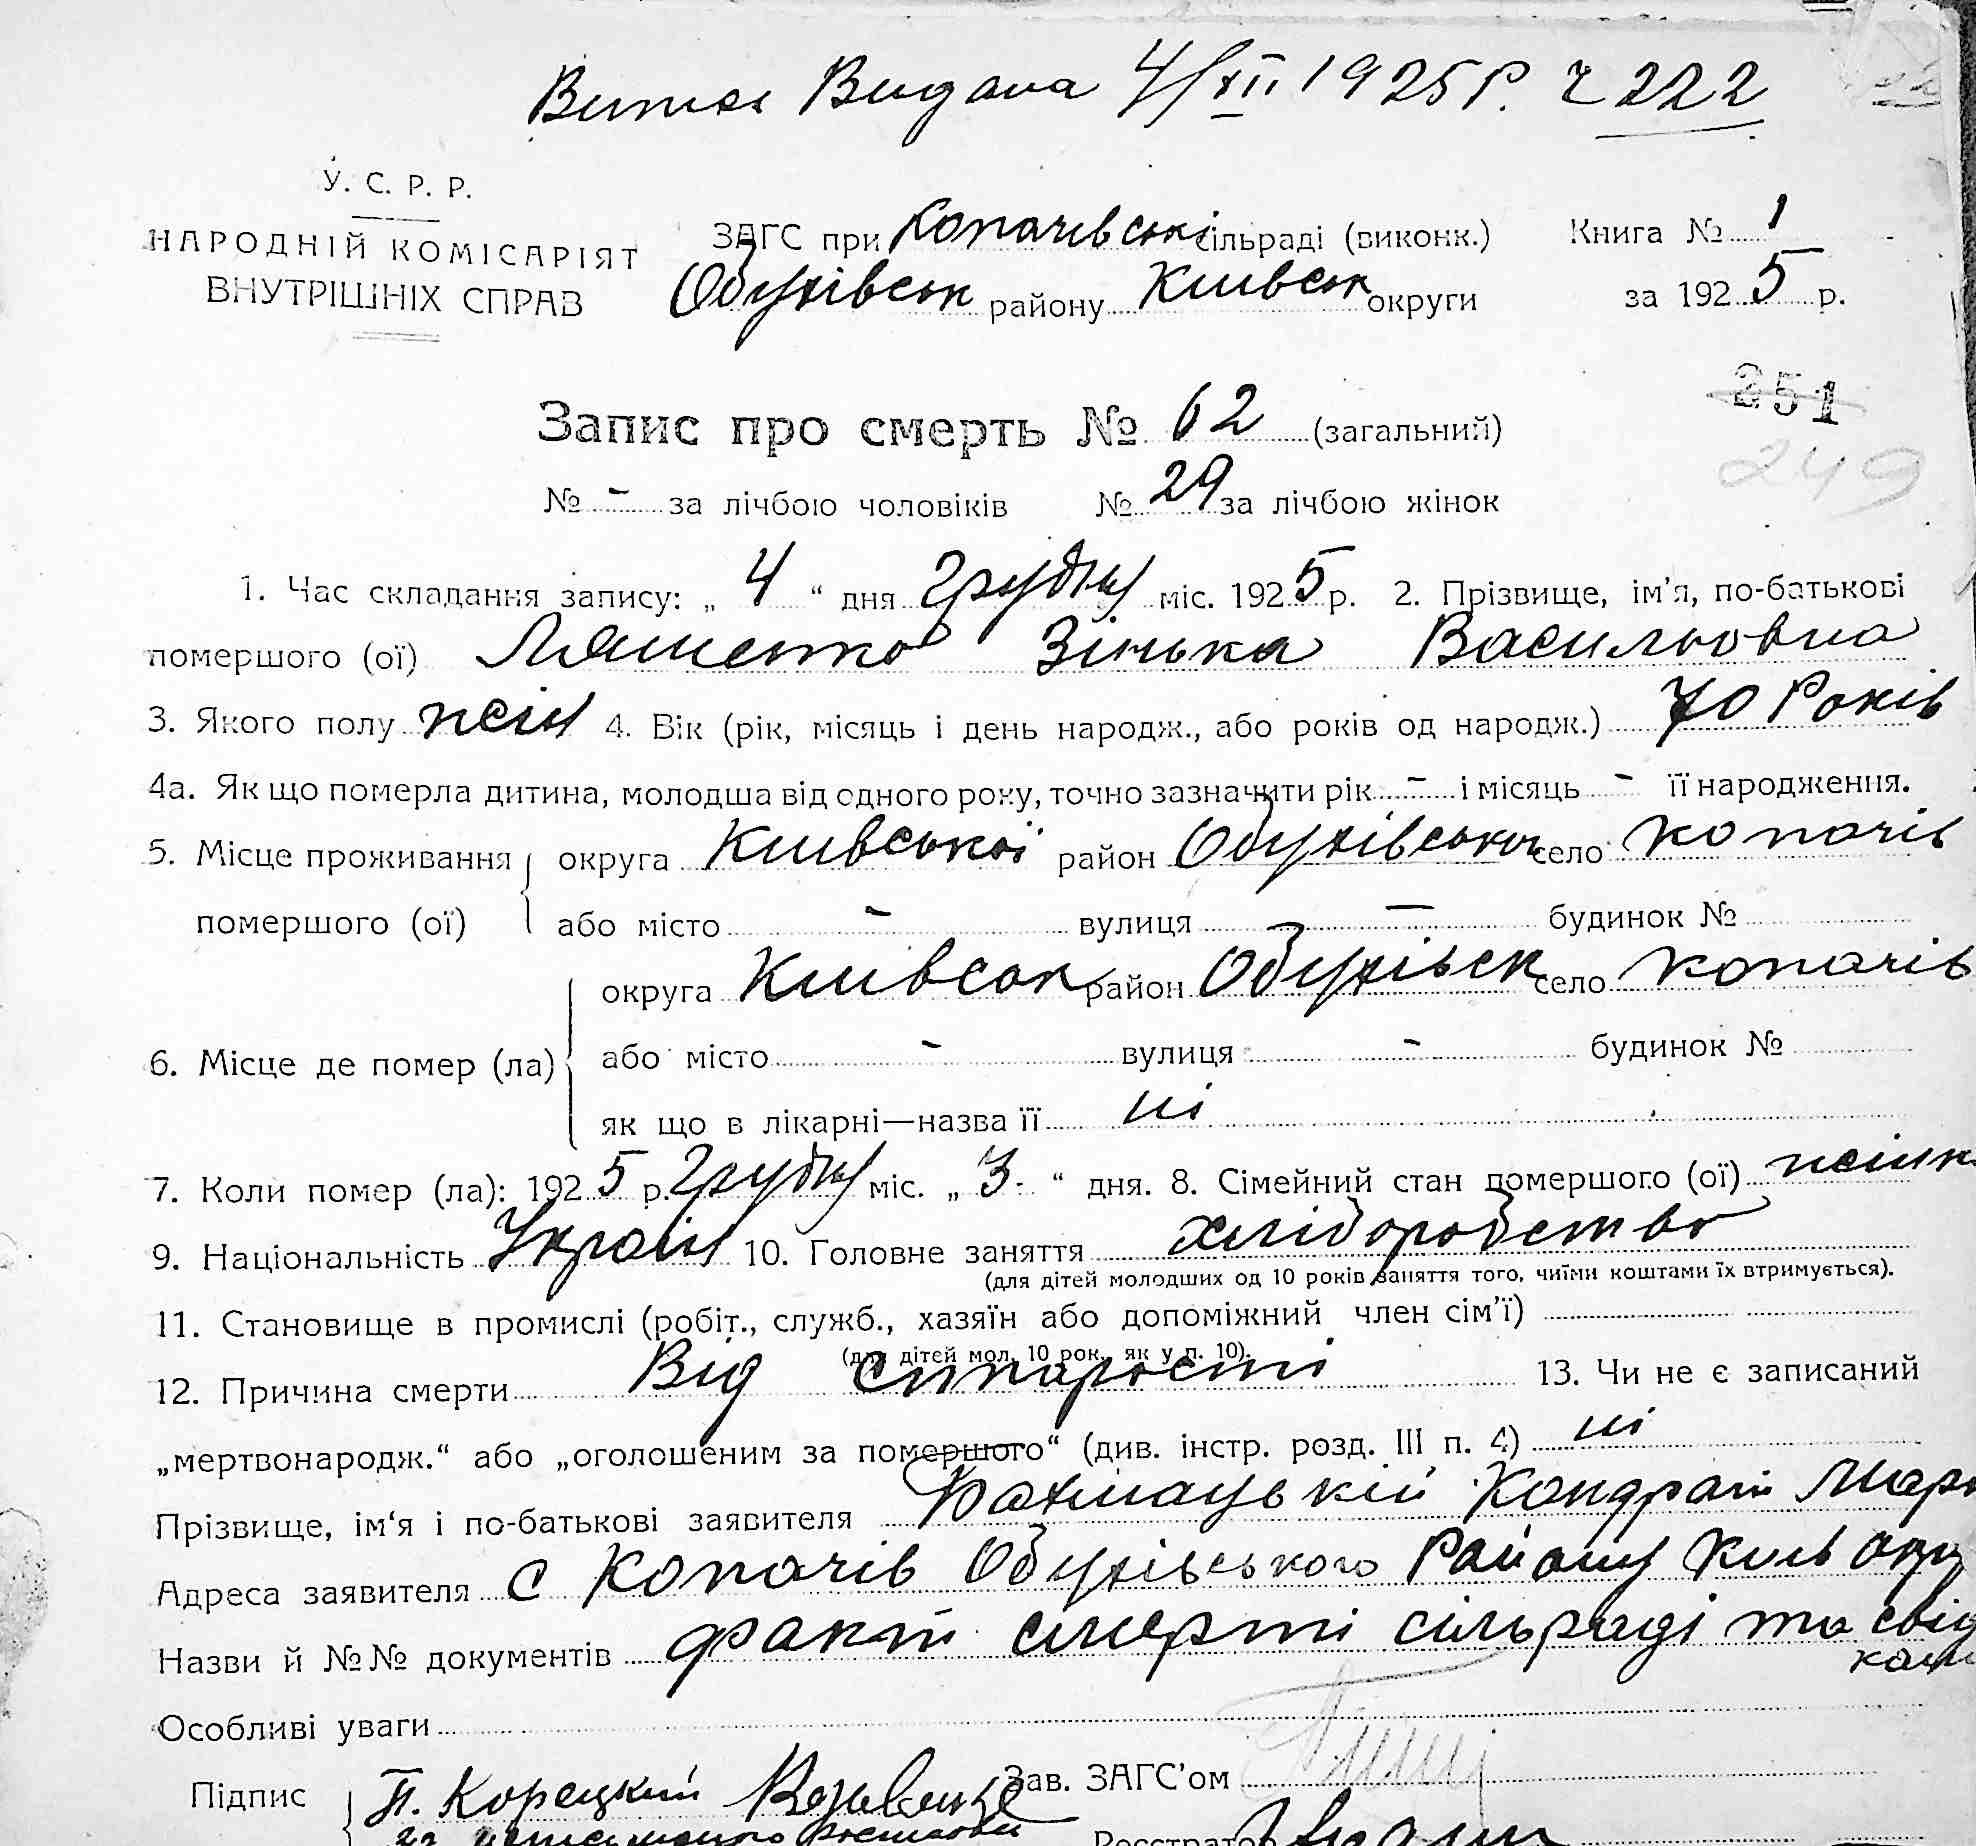 Витяг Видана 4/XII 1925 Р. Ч 222
У. С. Р. Р.
НАРОДНІЙ КОМІСАРІЯТ
ВНУТРІШНІХ СПРАВ
ЗАГС при Копачівські сільраді (виконк.) Книга № 1
Обухівськ району Київськ округи за 1925 р.
251
Запис про смерть № 62 (загальний)
249
№ - за лічбою чоловіків № 29 за лічбою жінок
1. Час складання запису: „ 4 “ дня Грудня міс. 1925 р. 2. Прізвище, ім’я, по-батькові
помершого (ої) Ляшенко Зінька Васильовна
3. Якого полу жін 4. Вік (рік, місяць і день народж., або років од народж.) 70 Років
4а. Як що померла дитина, молодша від одного року, точно зазначити рік - і місяць - її народження.
5. Місце проживання округа Київської район Обухівськи село Копачів
помершого (ої) або місто - вулиця - будинок №
округа Київськ район Обухівськ село Копачів
6. Місце де помер (ла) або місто - вулиця - будинок №
як що в лікарні—назва її ні
7. Коли помер (ла): 1925 р. Грудня міс. „ 3. “ дня. 8. Сімейний стан помершого (ої)
9. Національність Україн 10. Головне заняття хліборобство
(для дітей молодших од 10 років заняття того, чиїми коштами їх втримується).
11. Становище в промислі (робіт., служб., хазяїн або допоміжний член сім’ї)
(для дітей мол. 10 рок., як у п. 10).
12. Причина смерти Від старости 13. Чи не є записаний
„мертвонародж.“ або „оголошеним за помершого“ (див. інстр. розд. III п. 4) ні
Прізвище, ім‘я і по-батькові заявителя Бахмацькій Кондрат Мар
Адреса заявителя С Копачів Обухівського Району Київ окр
Назви й №№ документів факт смерті сільраді та свід
Особливі уваги
Підпис П. Корецкий Зав. ЗАГС’ом
Реєстратор